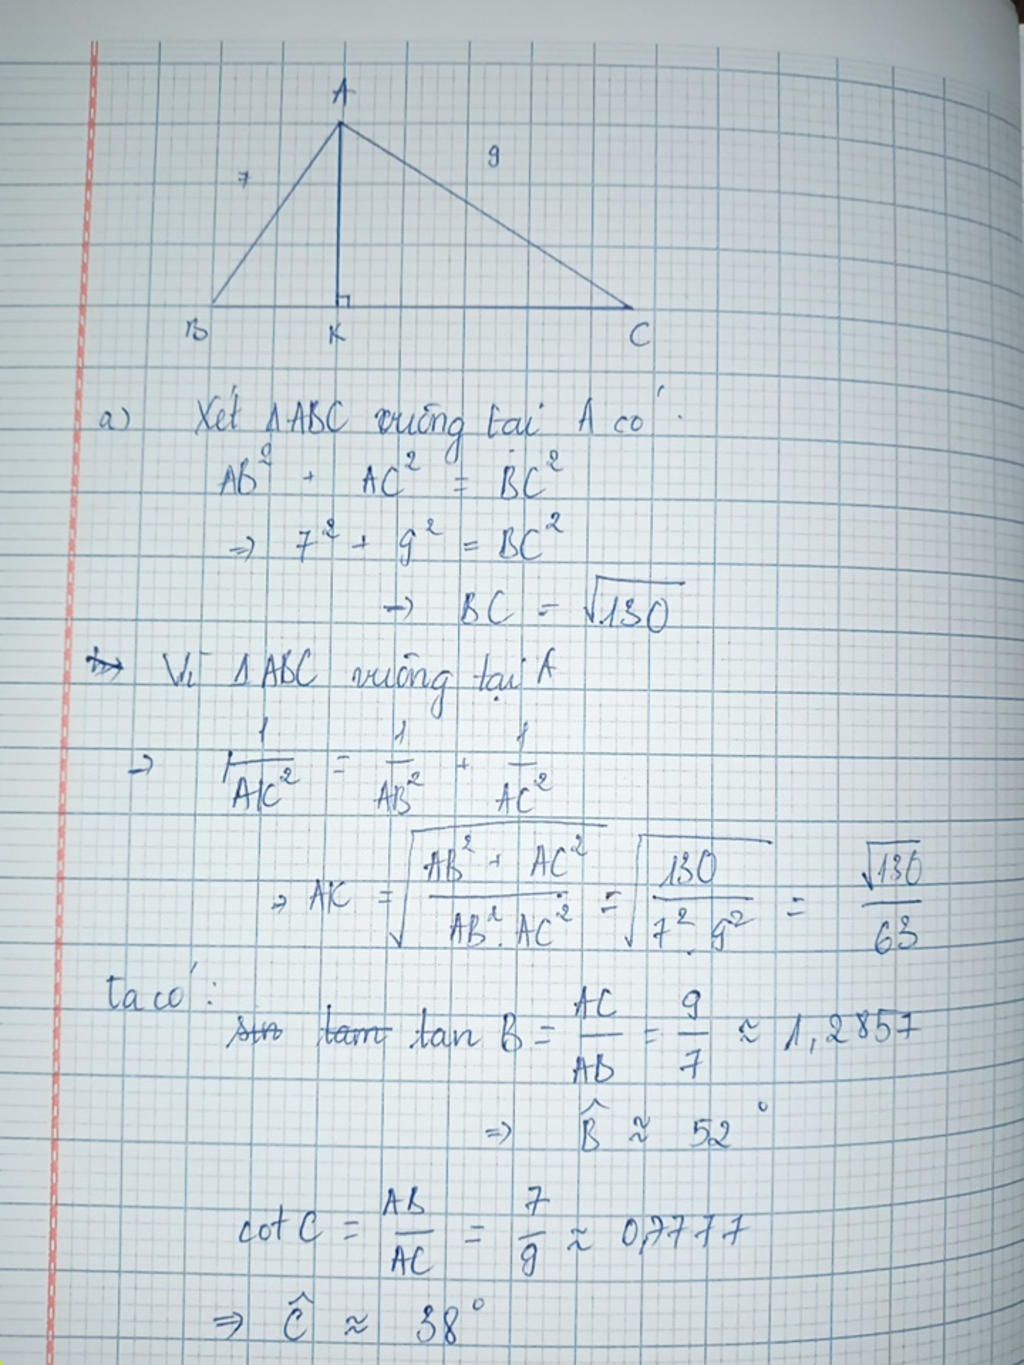 A
7
9
B K C
a) Xét ΔABC vuông tại A có:
AB² + AC² = BC²
⇒ 7² + 9² = BC²
→ BC = √130
Vì ΔABC vuông tại A
→ 1/AK² = 1/AB² + 1/AC²
⇒ AK = √((AB² + AC²)/(AB².AC²)) = √(130/(7².9²)) = √130/63
ta có:
tan B = AC/AB = 9/7 ≈ 1,2857
⇒ B̂ ≈ 52°
cot C = AB/AC = 7/9 ≈ 0,7777
⇒ Ĉ ≈ 38°